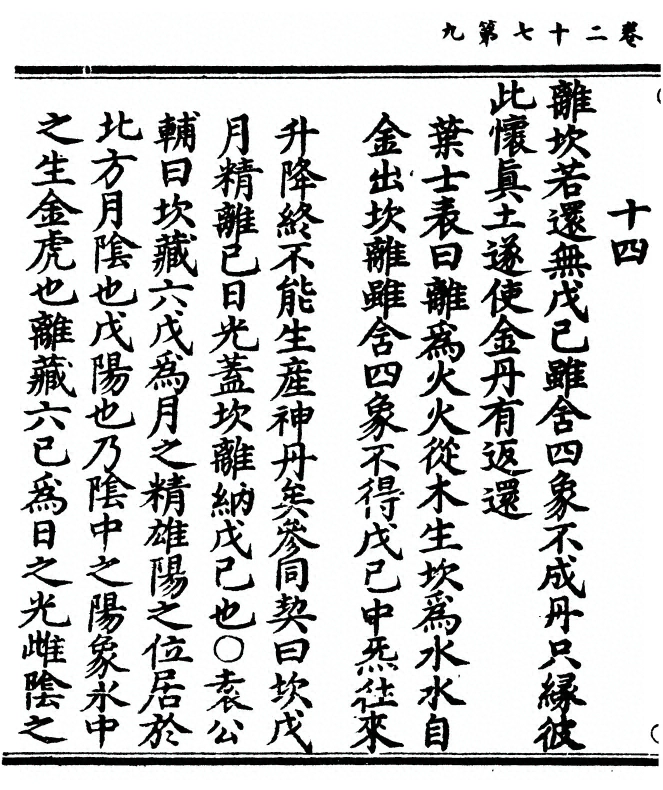 卷二十七第九
十四
離坎若還無戊己雖含四象不成丹只緣彼
此懷眞土遂使金丹有返還
葉士表曰離爲火火從木生坎爲水水自
金出坎離雖含四象不得戊己中炁往來
升降終不能生產神丹矣參同契曰坎戊
月精離己日光蓋坎離納戊己也○袁公
輔曰坎藏六戊爲月之精雄陽之位居於
北方月陰也戊陽也乃陰中之陽象水中
之生金虎也離藏六己爲日之光雌陰之